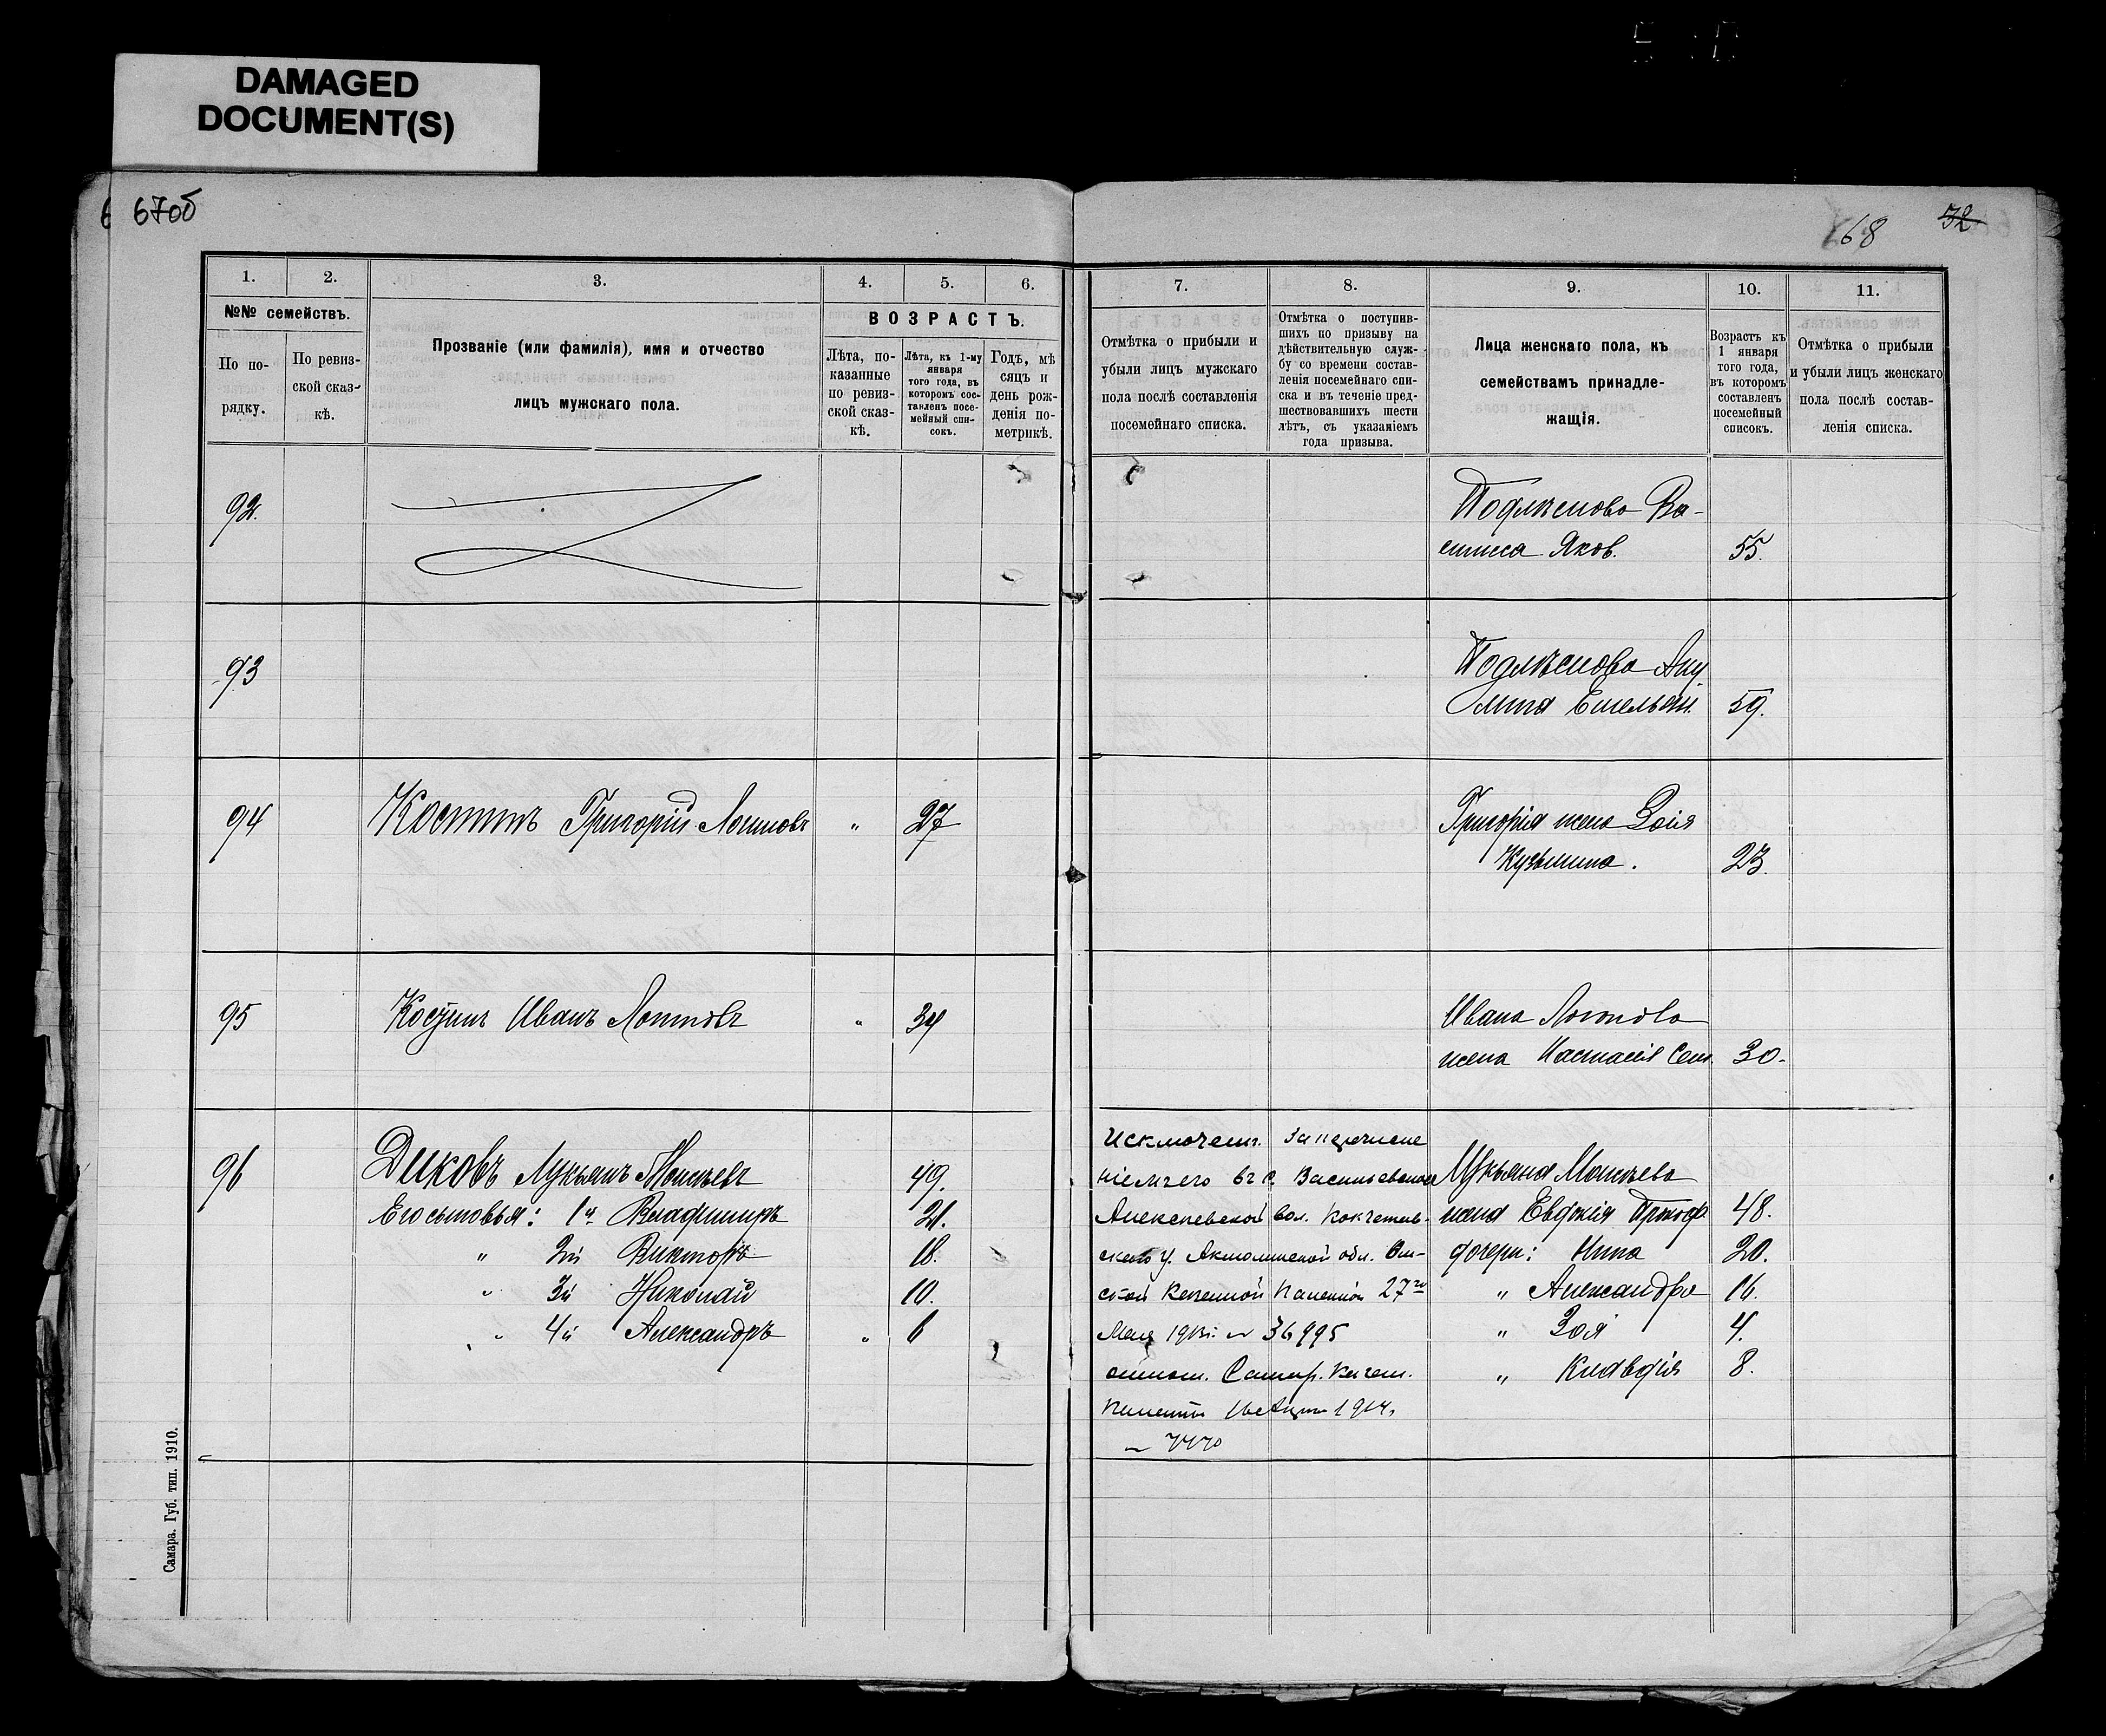 DAMAGED
DOCUMENT(S)
67об
68
32
1.
2.
3.
4.
5.
6.
№№ семействъ.
ВОЗРАСТЪ.
По по-
рядку.
По ревиз-
ской сказ-
кѣ.
Прозваніе (или фамилія), имя и отчество
лицъ мужскаго пола.
Лѣта, по-
казанные
по ревиз-
ской сказ-
кѣ.
Лѣта, къ 1-му
января
того года, въ
которомъ сос-
тавленъ посе-
мейный спи-
сокъ.
Годъ, мѣ
сяцъ и
день рож-
денія по-
метрикѣ.
7.
8.
9.
10.
11.
Отмѣтка о прибыли и
убыли лицъ мужскаго
пола послѣ составленія
посемейнаго списка.
Отмѣтка о поступив-
шихъ по призыву на
дѣйствительную служ-
бу со времени состав-
ленія посемейнаго спи-
ска и въ теченіе пред-
шествовавшихъ шести
лѣтъ, съ указаніемъ
года призыва.
Лица женскаго пола, къ
семействамъ принадле-
жащія.
Возрастъ къ
1 января
того года,
въ которомъ
составленъ
посемейный
списокъ.
Отмѣтка о прибыли
и убыли лицъ женскаго
пола послѣ состав-
ленія списка.
92.
Подлѣснова Ва-
силиса Яков. 55.
93
Подлѣснова Аку
лина Емельян. 59.
94 Костинъ Григорій Логиновъ " 27
Григорія жена Зоія
Кузьмина. 23.
95 Костинъ Иванъ Логиновъ " 34
Ивана Логинова
жена Настасія Сем. 30.
96 Диковъ Лукьянъ Моисѣевъ 49.
Его сыновья: 1й Владиміръ 21.
" 2й Викторъ 18.
" 3й Николай 10.
" 4й Александръ " 6
Исключенъ. За перечисле
ніемъ его въ с. Васильевское
Алексѣевской вол. Кокчетав-
скаго у. Акмолинской обл. Ом-
ской Казенной Палатой 27го
Мая 1913г. № 36995
отнош. Самар. Казен.
Палаты 1914.
Лукьяна Моисѣева
жена Евдокія Прокоф 48.
дочери: Нина 20.
" Александра 16.
" Зоя 4.
" Клавдія 8.
Самара. Губ. тип. 1910.